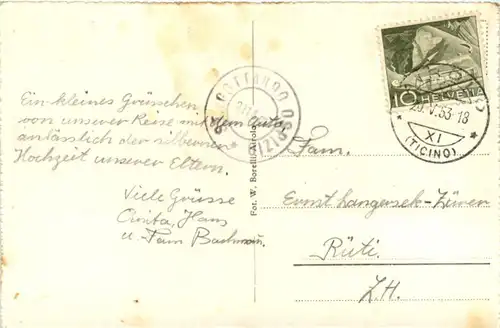 Ein kleines Grüsschen
von unserer Reise mit dem Auto
anlässlich der silbernen
Hochzeit unserer Eltern.
Viele Grüsse
Hans
u. Fam.
Fot. W. Borelli-Airolo
10 HELVETIA
V. 53-18
XI
(TICINO)
Fam.
Ernst
Rüti.
Z.H.